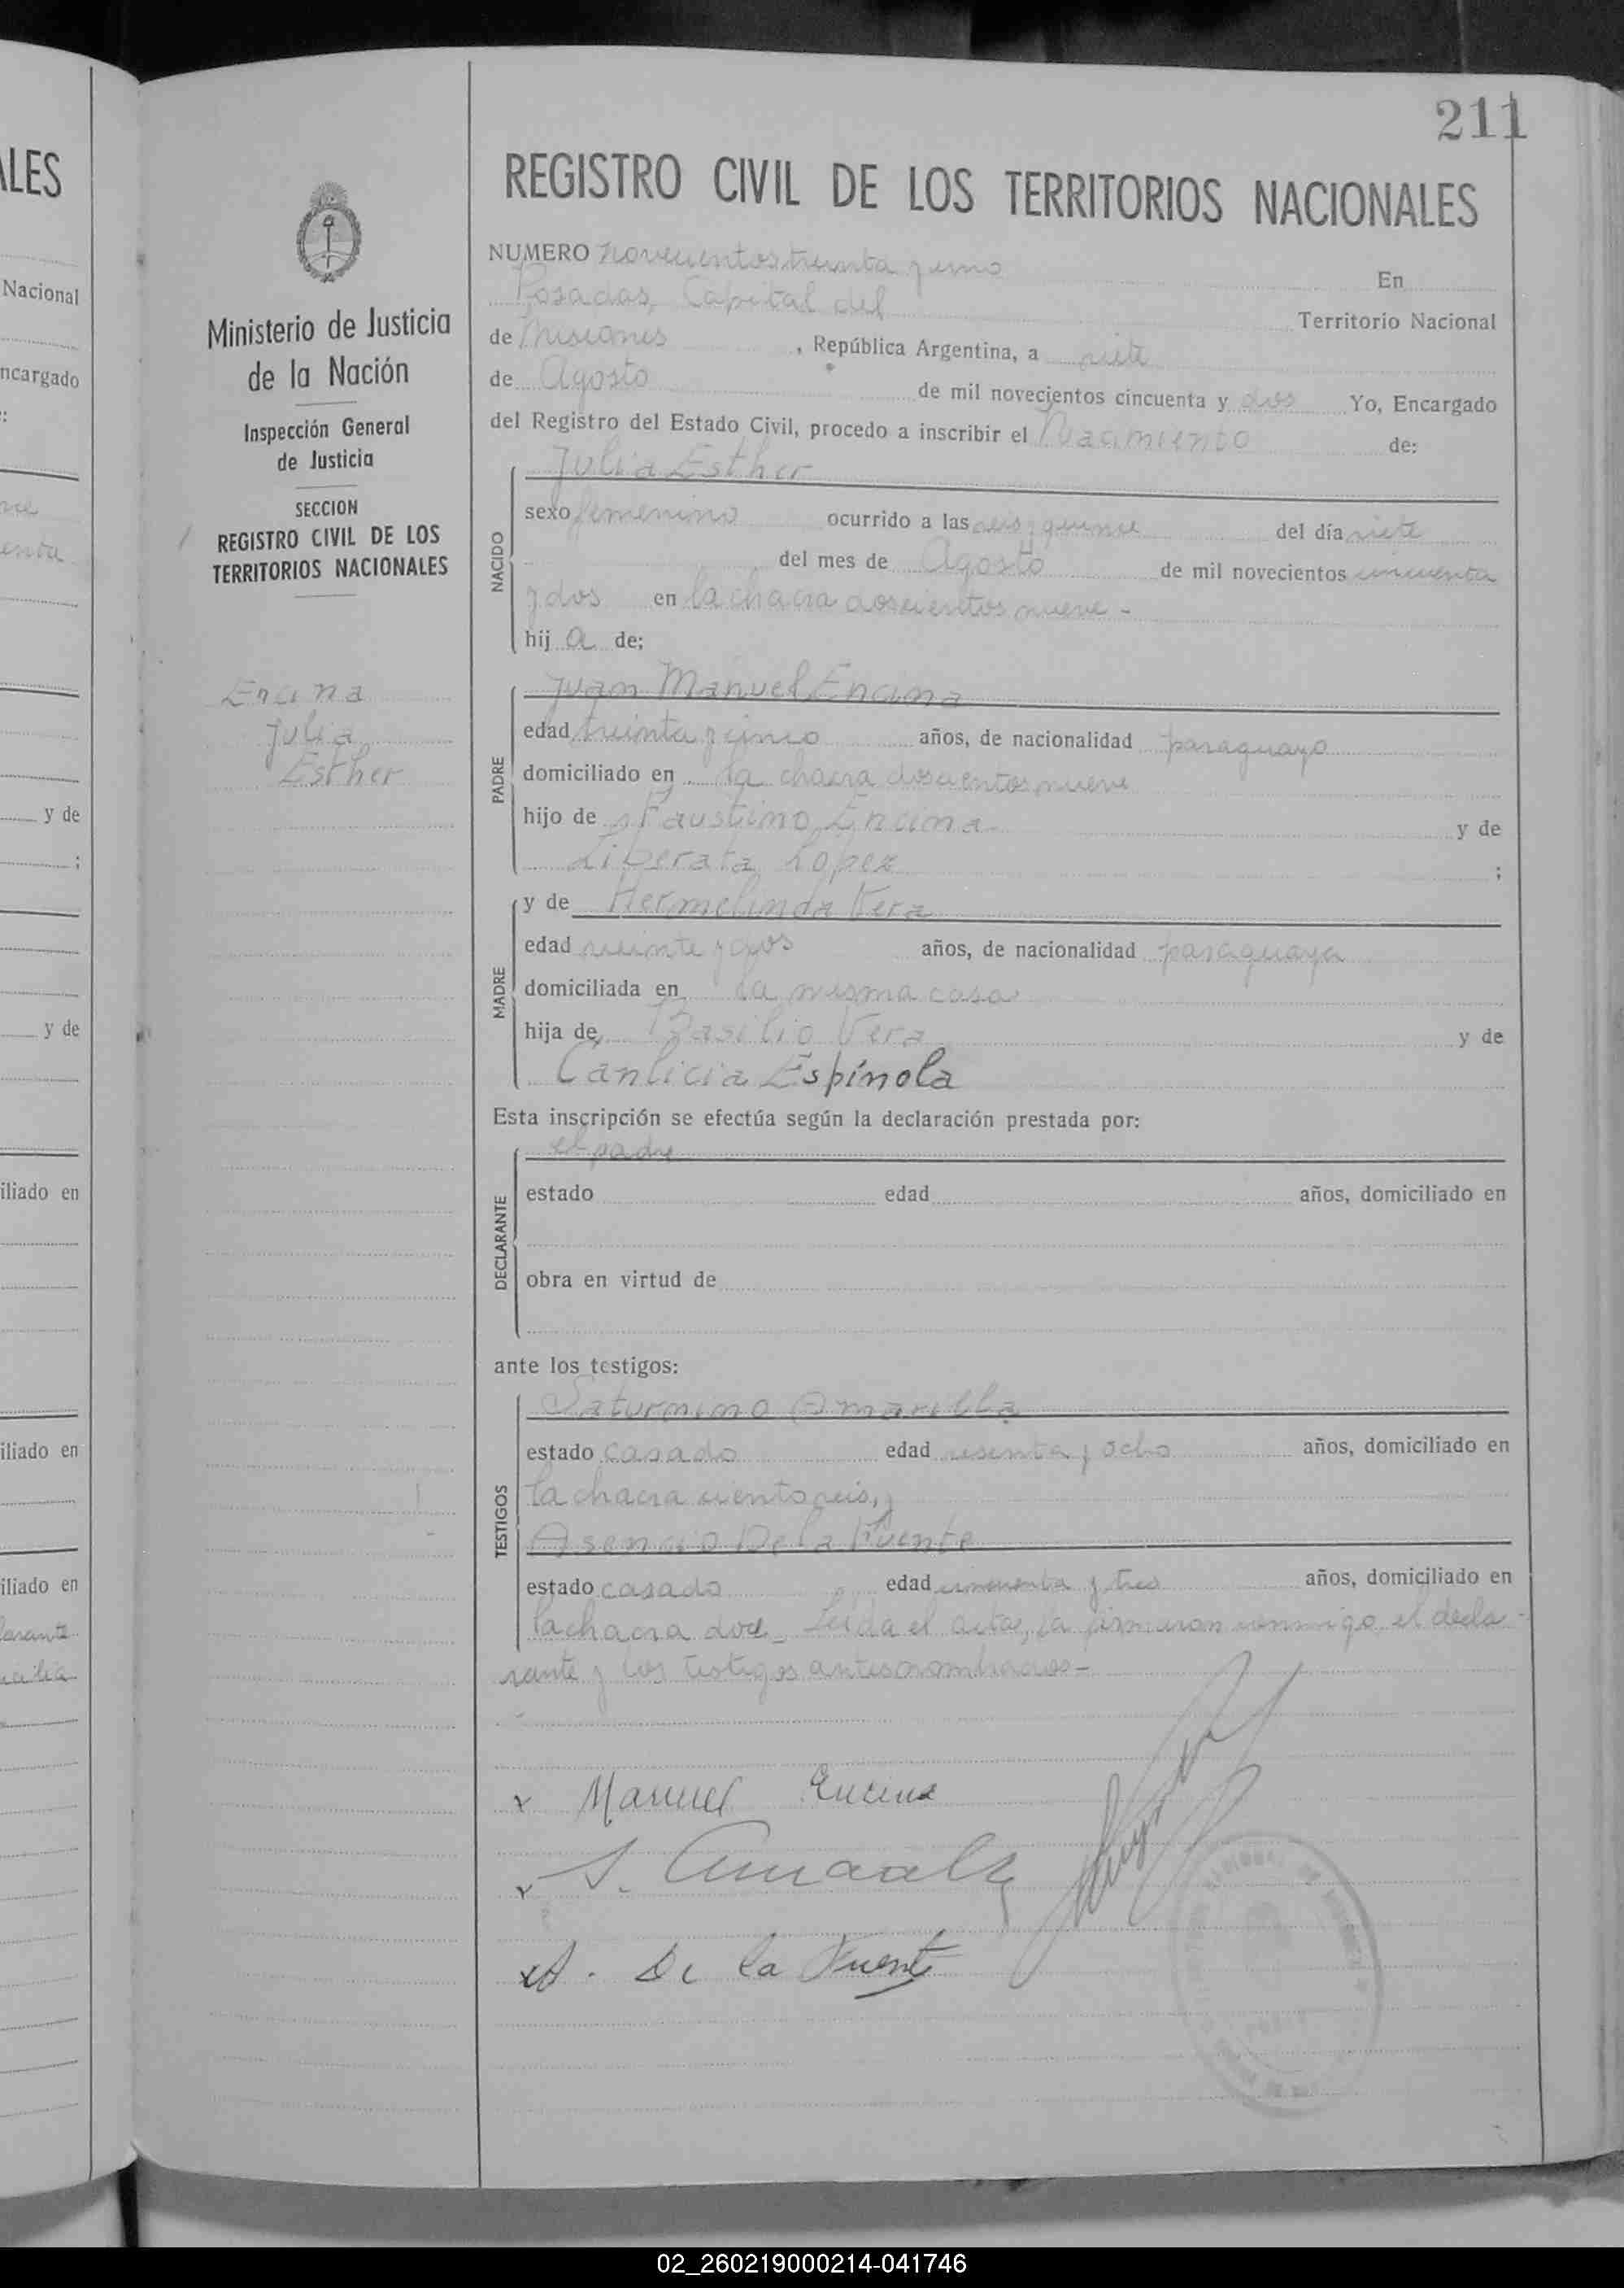 211
REGISTRO CIVIL DE LOS TERRITORIOS NACIONALES
Ministerio de Justicia
de la Nación
Inspección General
de Justicia
SECCION
REGISTRO CIVIL DE LOS
TERRITORIOS NACIONALES
Encina
Julia
Esther
NUMERO novecientos treinta y uno En
Posadas, Capital del Territorio Nacional
de Misiones, República Argentina, a siete
de Agosto de mil novecientos cincuenta y dos Yo, Encargado
del Registro del Estado Civil, procedo a inscribir el Nacimiento de:
NACIDO
Julia Esther
sexo femenino ocurrido a las seis y quince del día siete
del mes de Agosto de mil novecientos cincuenta
y dos en la chacra doscientos nueve -
hij a de;
PADRE
Juan Manuel Encina
edad treinta y cinco años, de nacionalidad paraguayo
domiciliado en la chacra doscientos nueve
hijo de Faustino Encina y de
Liberata Lopez ;
MADRE
y de Hermelinda Vera
edad veinte y dos años, de nacionalidad paraguaya
domiciliada en la misma casa
hija de Basilio Vera y de
Canlicia Espínola
Esta inscripción se efectúa según la declaración prestada por:
DECLARANTE
el padre
estado edad años, domiciliado en
obra en virtud de
ante los testigos:
TESTIGOS
Saturnino Amarilla
estado casado edad sesenta y ocho años, domiciliado en
la chacra ciento seis, y
Asencio De la Fuente
estado casado edad cincuenta y tres años, domiciliado en
la chacra doce_ Leída el acta, la firmaron conmigo el decla-
rante y los testigos antes nombrados-
x Manuel Encina
x S.
x A. De la Fuente
ALES
Nacional
ncargado
y de
;
y de
iliado en
iliado en
iliado en
02_260219000214-041746